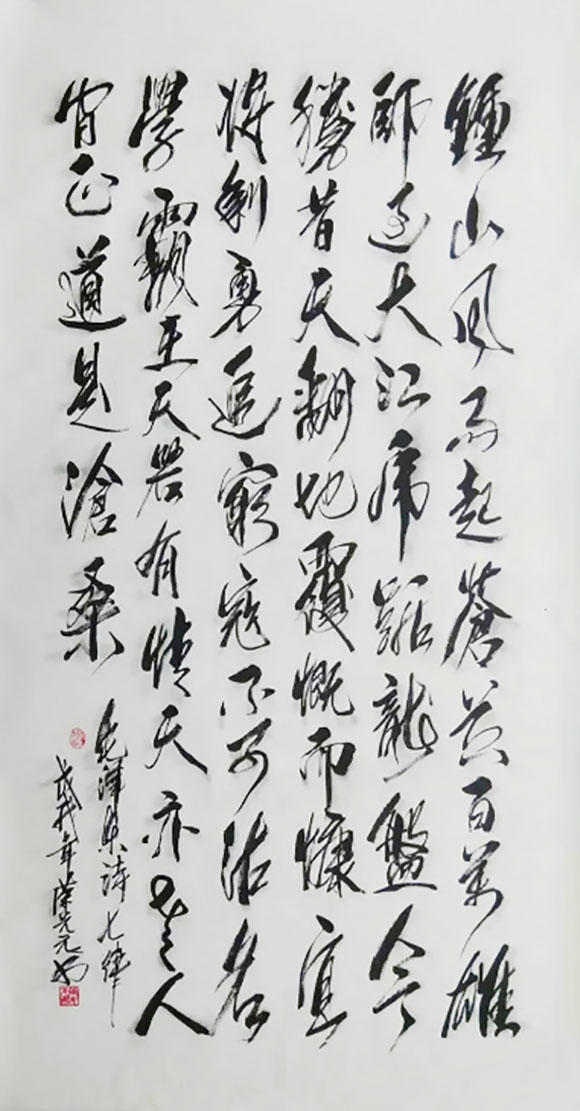 鍾山风雨起蒼黄百萬雄
師过大江虎踞龍盤今
勝昔天翻地覆慨而慷宜
将剩勇追窮寇不可沽名
學霸王天若有情天亦老人
间正道是滄桑
毛澤東诗七律
戊戌年光元书